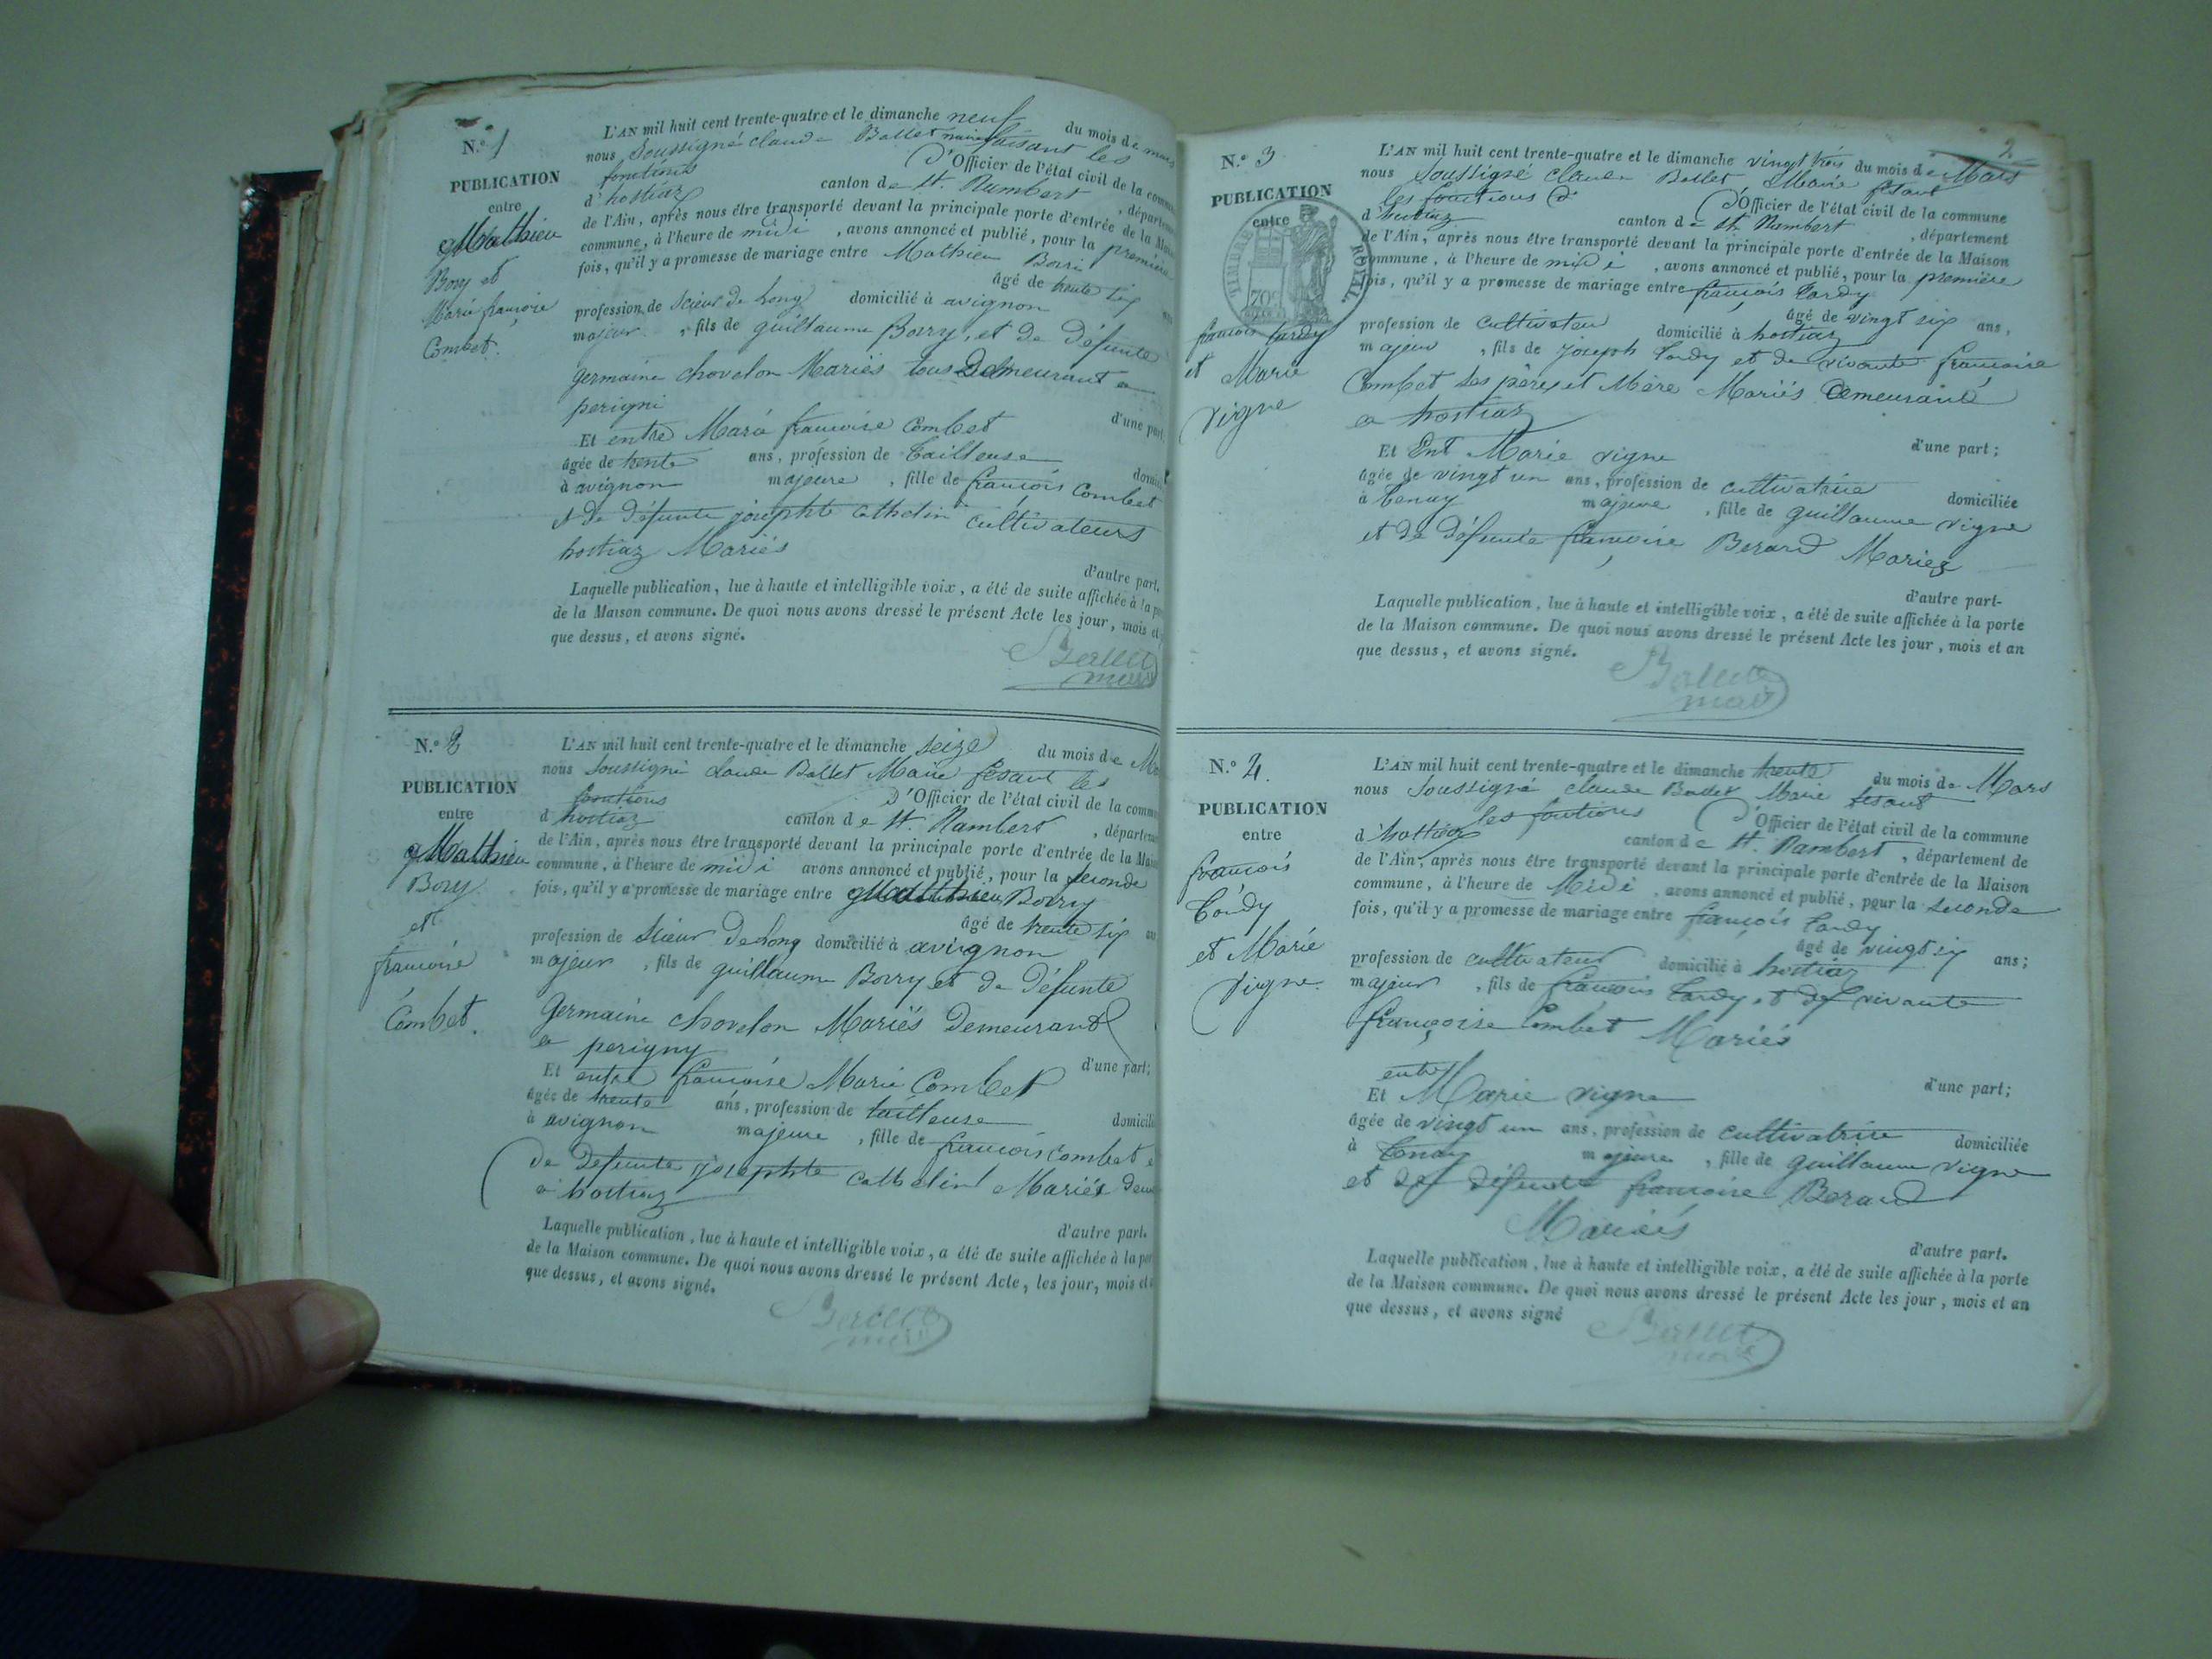 N.º 1
PUBLICATION
entre
Mathieu
Bory et
Marie françoise
Combet.
L'AN mil huit cent trente-quatre et le dimanche neuf du mois de mars
nous Soussigné claude Ballet maire faisant les
fonctions D'Officier de l'état civil de la commune
d'hostiaz canton de St. Rambert , département
de l'Ain, après nous être transporté devant la principale porte d'entrée de la Maison
commune, à l'heure de midi , avons annoncé et publié, pour la première
fois, qu'il y a promesse de mariage entre Mathieu Borri
âgé de trente six ans
profession de Scieur de Long domicilié à avignon
majeur , fils de guillaume Borry, et de Défunte
germaine chovelon Mariés tous Demeurant a
perigni
d'une part;
Et entre Marie francoise Combet
âgée de trente ans, profession de tailleuse
à avignon majeure , fille de francois Combet
et de Défunte josephte Cathelin cultivateurs
hostiaz Mariés
d'autre part.
Laquelle publication, lue à haute et intelligible voix, a été de suite affichée à la
de la Maison commune. De quoi nous avons dressé le présent Acte les jour, mois et
que dessus, et avons signé.
Ballet
maire
N.º 2
PUBLICATION
entre
Mathieu
Bory
et
francoise
Combet.
L'AN mil huit cent trente-quatre et le dimanche seize du mois de
nous Soussigné claude Ballet Maire fesant les
fontions D'Officier de l'état civil de la
d hostiaz canton de St. Rambert ,
de l'Ain, après nous être transporté devant la principale porte d'entrée de la
commune, à l'heure de midi avons annoncé et publié, pour la seconde
fois, qu'il y a promesse de mariage entre Mathieu Borry
âgé de trente six
profession de Scieur De Long domicilié à avignon
majeur , fils de guillaume Borry et de Défunte
germaine chovelon Mariés Demeurant
a perigny
d'une part;
Et entre francoise Marie Combet
âgée de trente ans, profession de tailleuse
à avignon majeure , fille de francois Combet
de Defunte josephte Cathelin Mariés
a hostiaz
d'autre part.
Laquelle publication, lue à haute et intelligible voix, a été de suite affichée à la
de la Maison commune. De quoi nous avons dressé le présent Acte, les jour, mois et
que dessus, et avons signé.
Ballet
maire
2
N.º 3
PUBLICATION
entre
TIMBRE ROYAL.
70c
francois tardy
et Marie
Vigne
L'AN mil huit cent trente-quatre et le dimanche vingt trois du mois de Mars
nous Soussigné claude Ballet Maire fesant
les fonctions D'Officier de l'état civil de la commune
d'hostiaz canton de St. Rambert , département
de l'Ain, après nous être transporté devant la principale porte d'entrée de la Maison
commune, à l'heure de midi , avons annoncé et publié, pour la première
fois, qu'il y a promesse de mariage entre francois tardy
âgé de vingt six ans,
profession de cultivateur domicilié à hostiaz
majeur , fils de joseph tardy et de vivante francoise
Combet ses père et Mère Mariés Demeurant
a hostiaz
d'une part;
Et Ent Marie vigne
âgée de vingt un ans, profession de cultivatrice domiciliée
à tenay majeure , fille de guillaume vigne
et de défunte francoise Berard Mariés
d'autre part-
Laquelle publication, lue à haute et intelligible voix, a été de suite affichée à la porte
de la Maison commune. De quoi nous avons dressé le présent Acte les jour, mois et an
que dessus, et avons signé.
Ballet
maire
N.º 4.
PUBLICATION
entre
francois
tardy
et Marie
Vigne.
L'AN mil huit cent trente-quatre et le dimanche trente du mois de Mars
nous Soussigné claude Ballet Maire fesant
les fontions D'Officier de l'état civil de la commune
d'hostiaz canton de St. Rambert , département de
de l'Ain, après nous être transporté devant la principale porte d'entrée de la Maison
commune, à l'heure de Midi , avons annoncé et publié, pour la seconde
fois, qu'il y a promesse de mariage entre francois tardy
âgé de vingt six ans;
profession de cultivateur domicilié à hostiaz
majeur , fils de francois tardy et de vivante
françoise Combet Mariés
d'une part;
Et entre Marie vigne
âgée de vingt un ans, profession de cultivatrice domiciliée
à tenay majeure , fille de guillaume vigne
et de défunte francoise Berard
Mariés
d'autre part.
Laquelle publication, lue à haute et intelligible voix, a été de suite affichée à la porte
de la Maison commune. De quoi nous avons dressé le présent Acte les jour, mois et an
que dessus, et avons signé
Ballet
maire